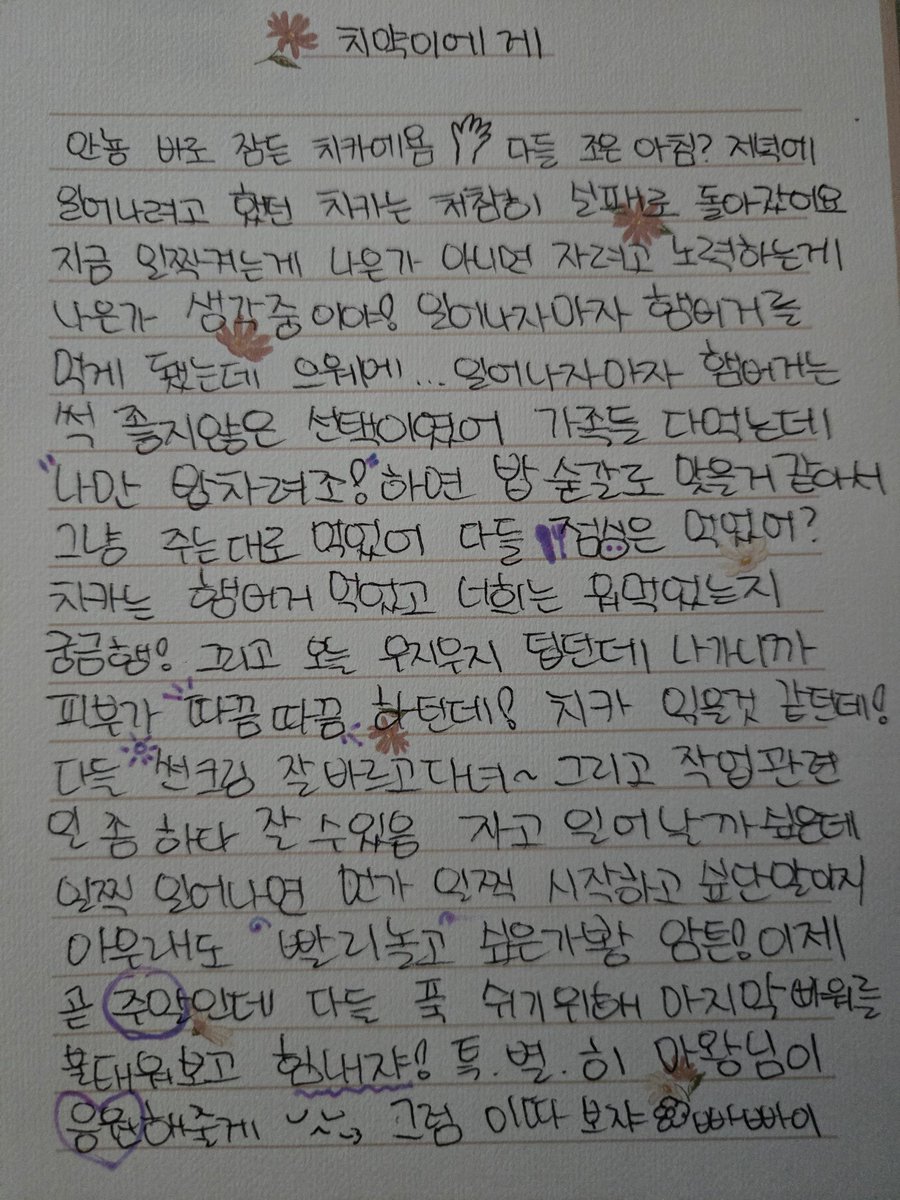 치약이에게
안뇽 바로 잠든 치카에욤 다들 조은 아침? 저녁에
일어나려고 했던 치카는 처참히 실패로 돌아갔어요
지금 일찍자는게 나은가 아니면 자려고 노력하는게
나은가 생각중이야! 일어나자마자 햄버거를
먹게 됐는데 으웨에... 일어나자마자 햄버거는
썩 좋지않은 선택이였어 가족들 다먹는데
"나만 밥차려조!" 하면 밥 숟갈로 맞을거같아서
그냥 주는대로 먹었어 다들 점심은 먹었어?
치카는 햄버거 먹었고 너희는 뭐먹었는지
궁금행! 그리고 오늘 우지우지 덥던데 나가니까
피부가 따끔따끔 하던데! 치카 익을것 같던데!
다들 썬크림 잘바르고다녀~ 그리고 작업관련
일 좀 하다 잘 수있음 자고 일어날까싶은데
일찍 일어나면 먼가 일찍 시작하고 싶단말이지
아무래도 "빨리놀고" 싶은가봥 암튼! 이제
곧 주말인데 다들 푹 쉬기위해 마지막 빠워를
불태워보고 힘내쟈! 특.별.히 마왕님이
응원해줄게 그럼 이따 보쟈 빠빠이